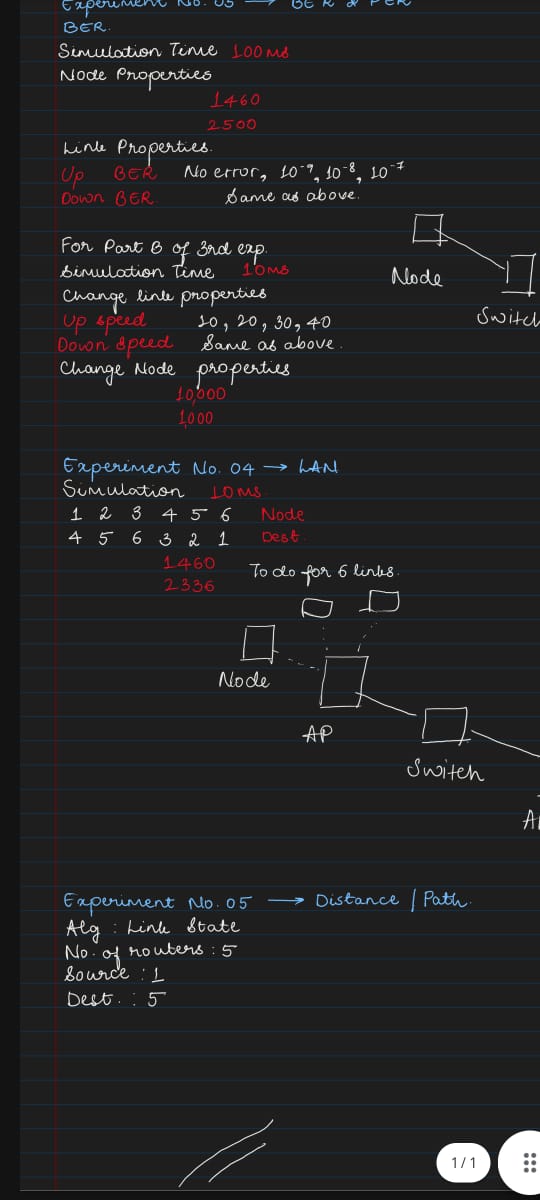 Experiment No. 03 → BER & PER
BER.
Simulation Time 100ms
Node Properties
1460
2500
Link Properties.
Up BER No error, 10⁻⁹, 10⁻⁸, 10⁻⁷
Down BER. Same as above.
For Part B of 3rd exp.
Simulation Time 10ms
Change link properties
Node
Up speed 10, 20, 30, 40
Switch
Down speed Same as above.
Change Node properties
10,000
1,000
Experiment No. 04 → LAN
Simulation 10ms.
1 2 3 4 5 6 Node
4 5 6 3 2 1 Dest.
1460
To do for 6 links.
2336
Node
AP
Switch
Experiment No. 05 → Distance / Path.
Alg : Link State
No. of routers : 5
Source : 1
Dest. : 5
1 / 1